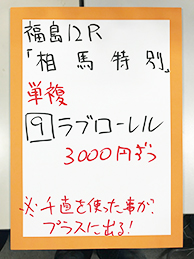 福島12R
「相馬特別」
単複
9 ラブローレル
3000円ずつ
※千直を使った事が?
プラスに出る!